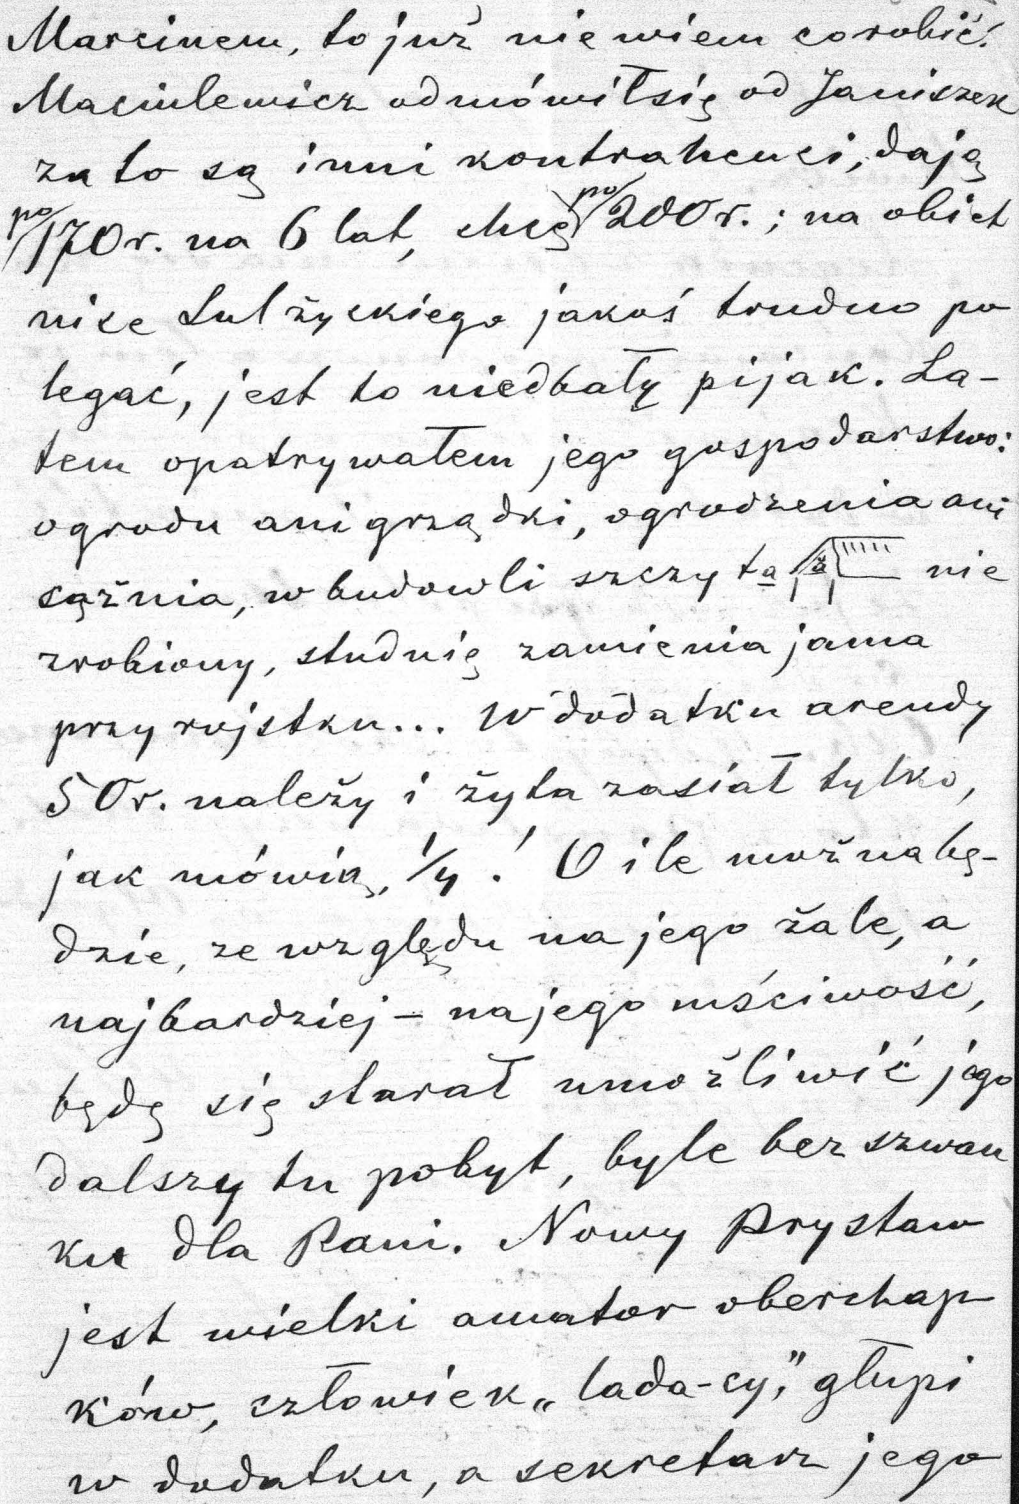 Marcinem, to już nie wiem co robić.
Maciulewicz odmówił się od Janiszek
za to są inni kontrahenci, dają
po 170 r. na 6 lat, chcę po 200 r.; na obiet
nice Lulżyckiego jakoś trudno po
legać, jest to niedbały pijak. La-
tem opatrywałem jego gospodarstwo:
ogrodu ani grządki, ogrodzenia ani
sążnia, w budowli szczyt a a nie
zrobiony, studnię zamienia jama
przy rojstku... W dodatku arendy
50 r. należy i żyta zasiał tylko,
jak mówią, 1/4! O ile można bę-
dzie, ze względu na jego żale, a
najbardziej - na jego mściwość,
będę się starał umożliwić jego
dalszy tu pobyt, byle bez szwan
ku dla Pani. Nowy Prystaw
jest wielki amator oberchap
ków, człowiek „lada-cy," głupi
w dodatku, a sekretarz jego